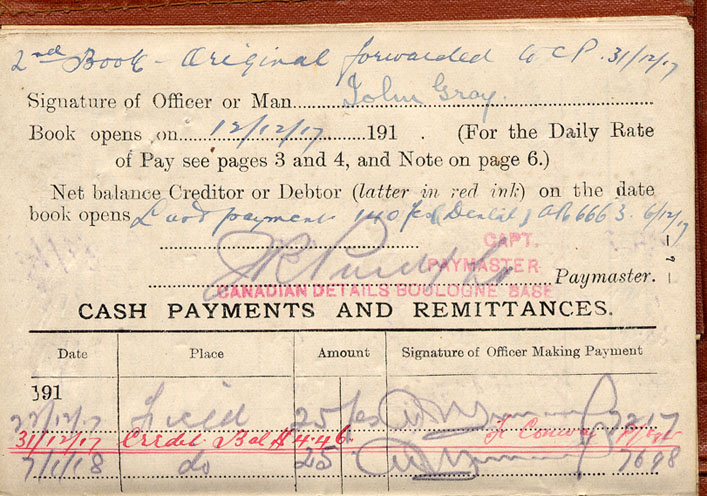 2nd Book - Original forwarded to CP. 31/12/17
Signature of Officer or Man John Gray.
Book opens on 12/12/17 191 . (For the Daily Rate
of Pay see pages 3 and 4, and Note on page 6.)
Net balance Creditor or Debtor (latter in red ink) on the date
book opens Last payment 140 fcs (Dental) 6663. 6/12/17
CAPT.
PAYMASTER
Paymaster.
CANADIAN DETAILS BOULOGNE BASE
CASH PAYMENTS AND REMITTANCES.
Date Place Amount Signature of Officer Making Payment
191
22/12/17 Field 25 fcs 7217
31/12/17 Credit Bal $ 4.46 Conway
7/1/18 do 25 7698